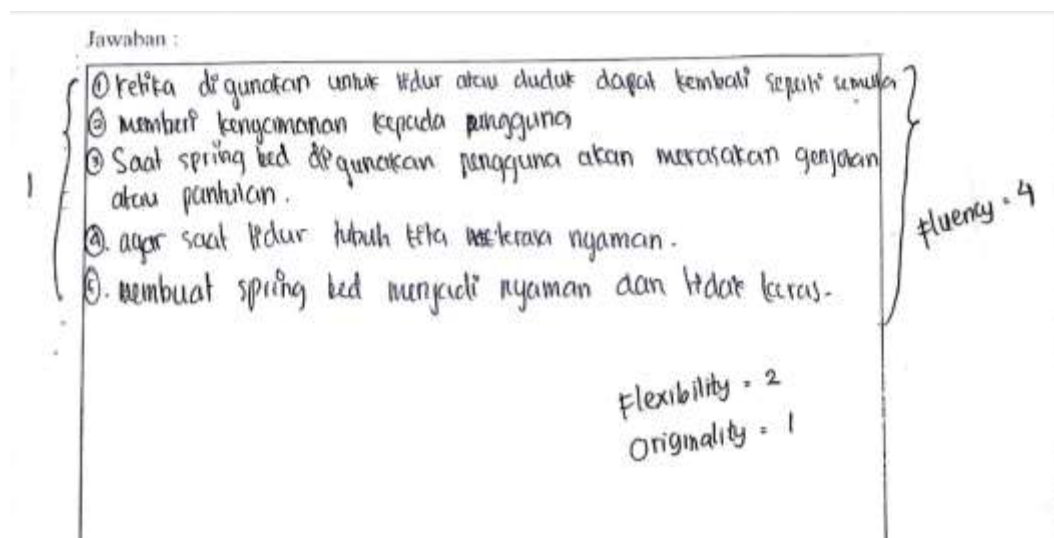 Jawaban :
① ketika di gunakan untuk tidur atau duduk dapat kembali seperti semula
② memberi kenyamanan kepada pengguna
③ Saat spring bed di gunakan pengguna akan merasakan genjotan
atau pantulan.
④. agar saat tidur tubuh kita terasa nyaman.
⑤. membuat spring bed menjadi nyaman dan tidak keras.
1
Fluency = 4
Flexibility = 2
Originality = 1